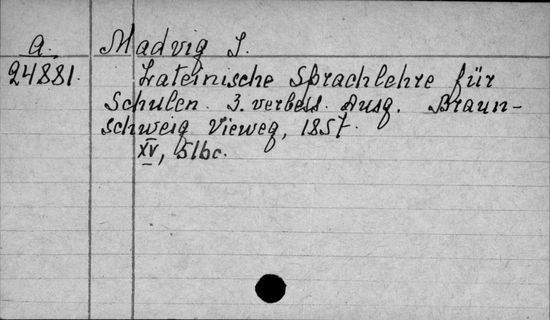 A.
24881.
Madvig J.
Lateinische Sprachlehre für
Schulen. 3. verbess. Ausg. Braun-
schweig Vieweg, 1857.
XV, 516c.